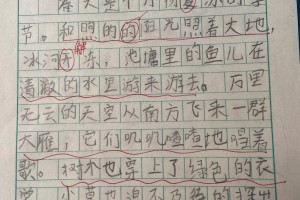 春天是个万物复苏的季
节。和煦的的阳光照着大地,
冰河开冻,池塘里的鱼儿在
清澈的水里游来游去。万里
无云的天空从南方飞来一群
大雁,它们叽叽喳喳地唱着
歌。树木也穿上了绿色的衣
小草也迫不及待的探出